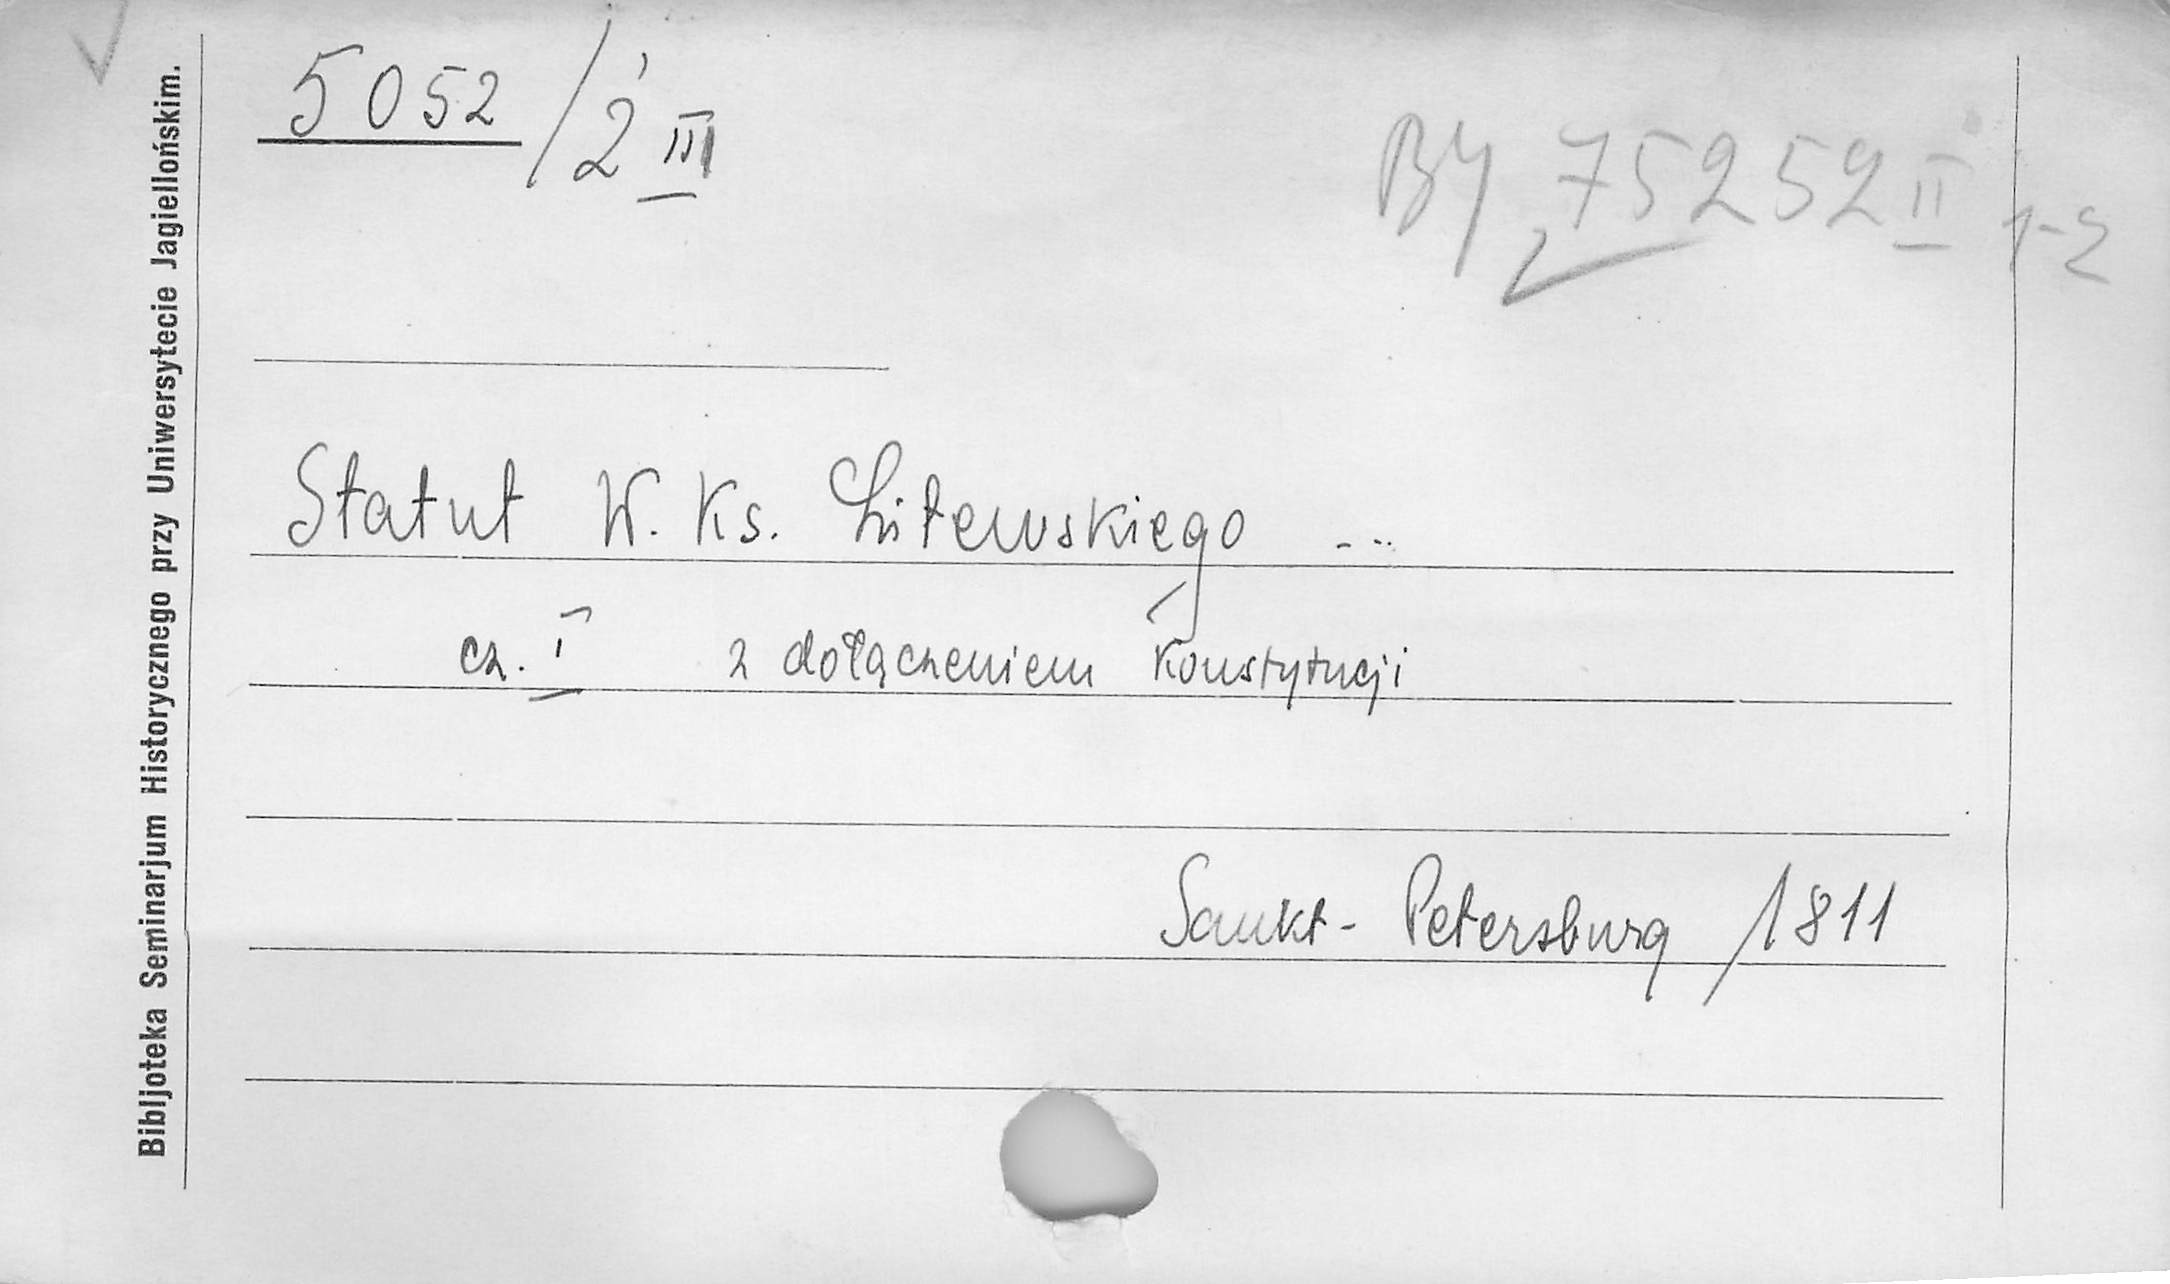 5052/2 III
BJ 75252 II 1-2
Statut W. Ks. Litewskiego ...
cz. I z dołączeniem Konstytucji
Sankt-Petersburg / 1811
Bibljoteka Seminarjum Historycznego przy Uniwersytecie Jagiellońskim.